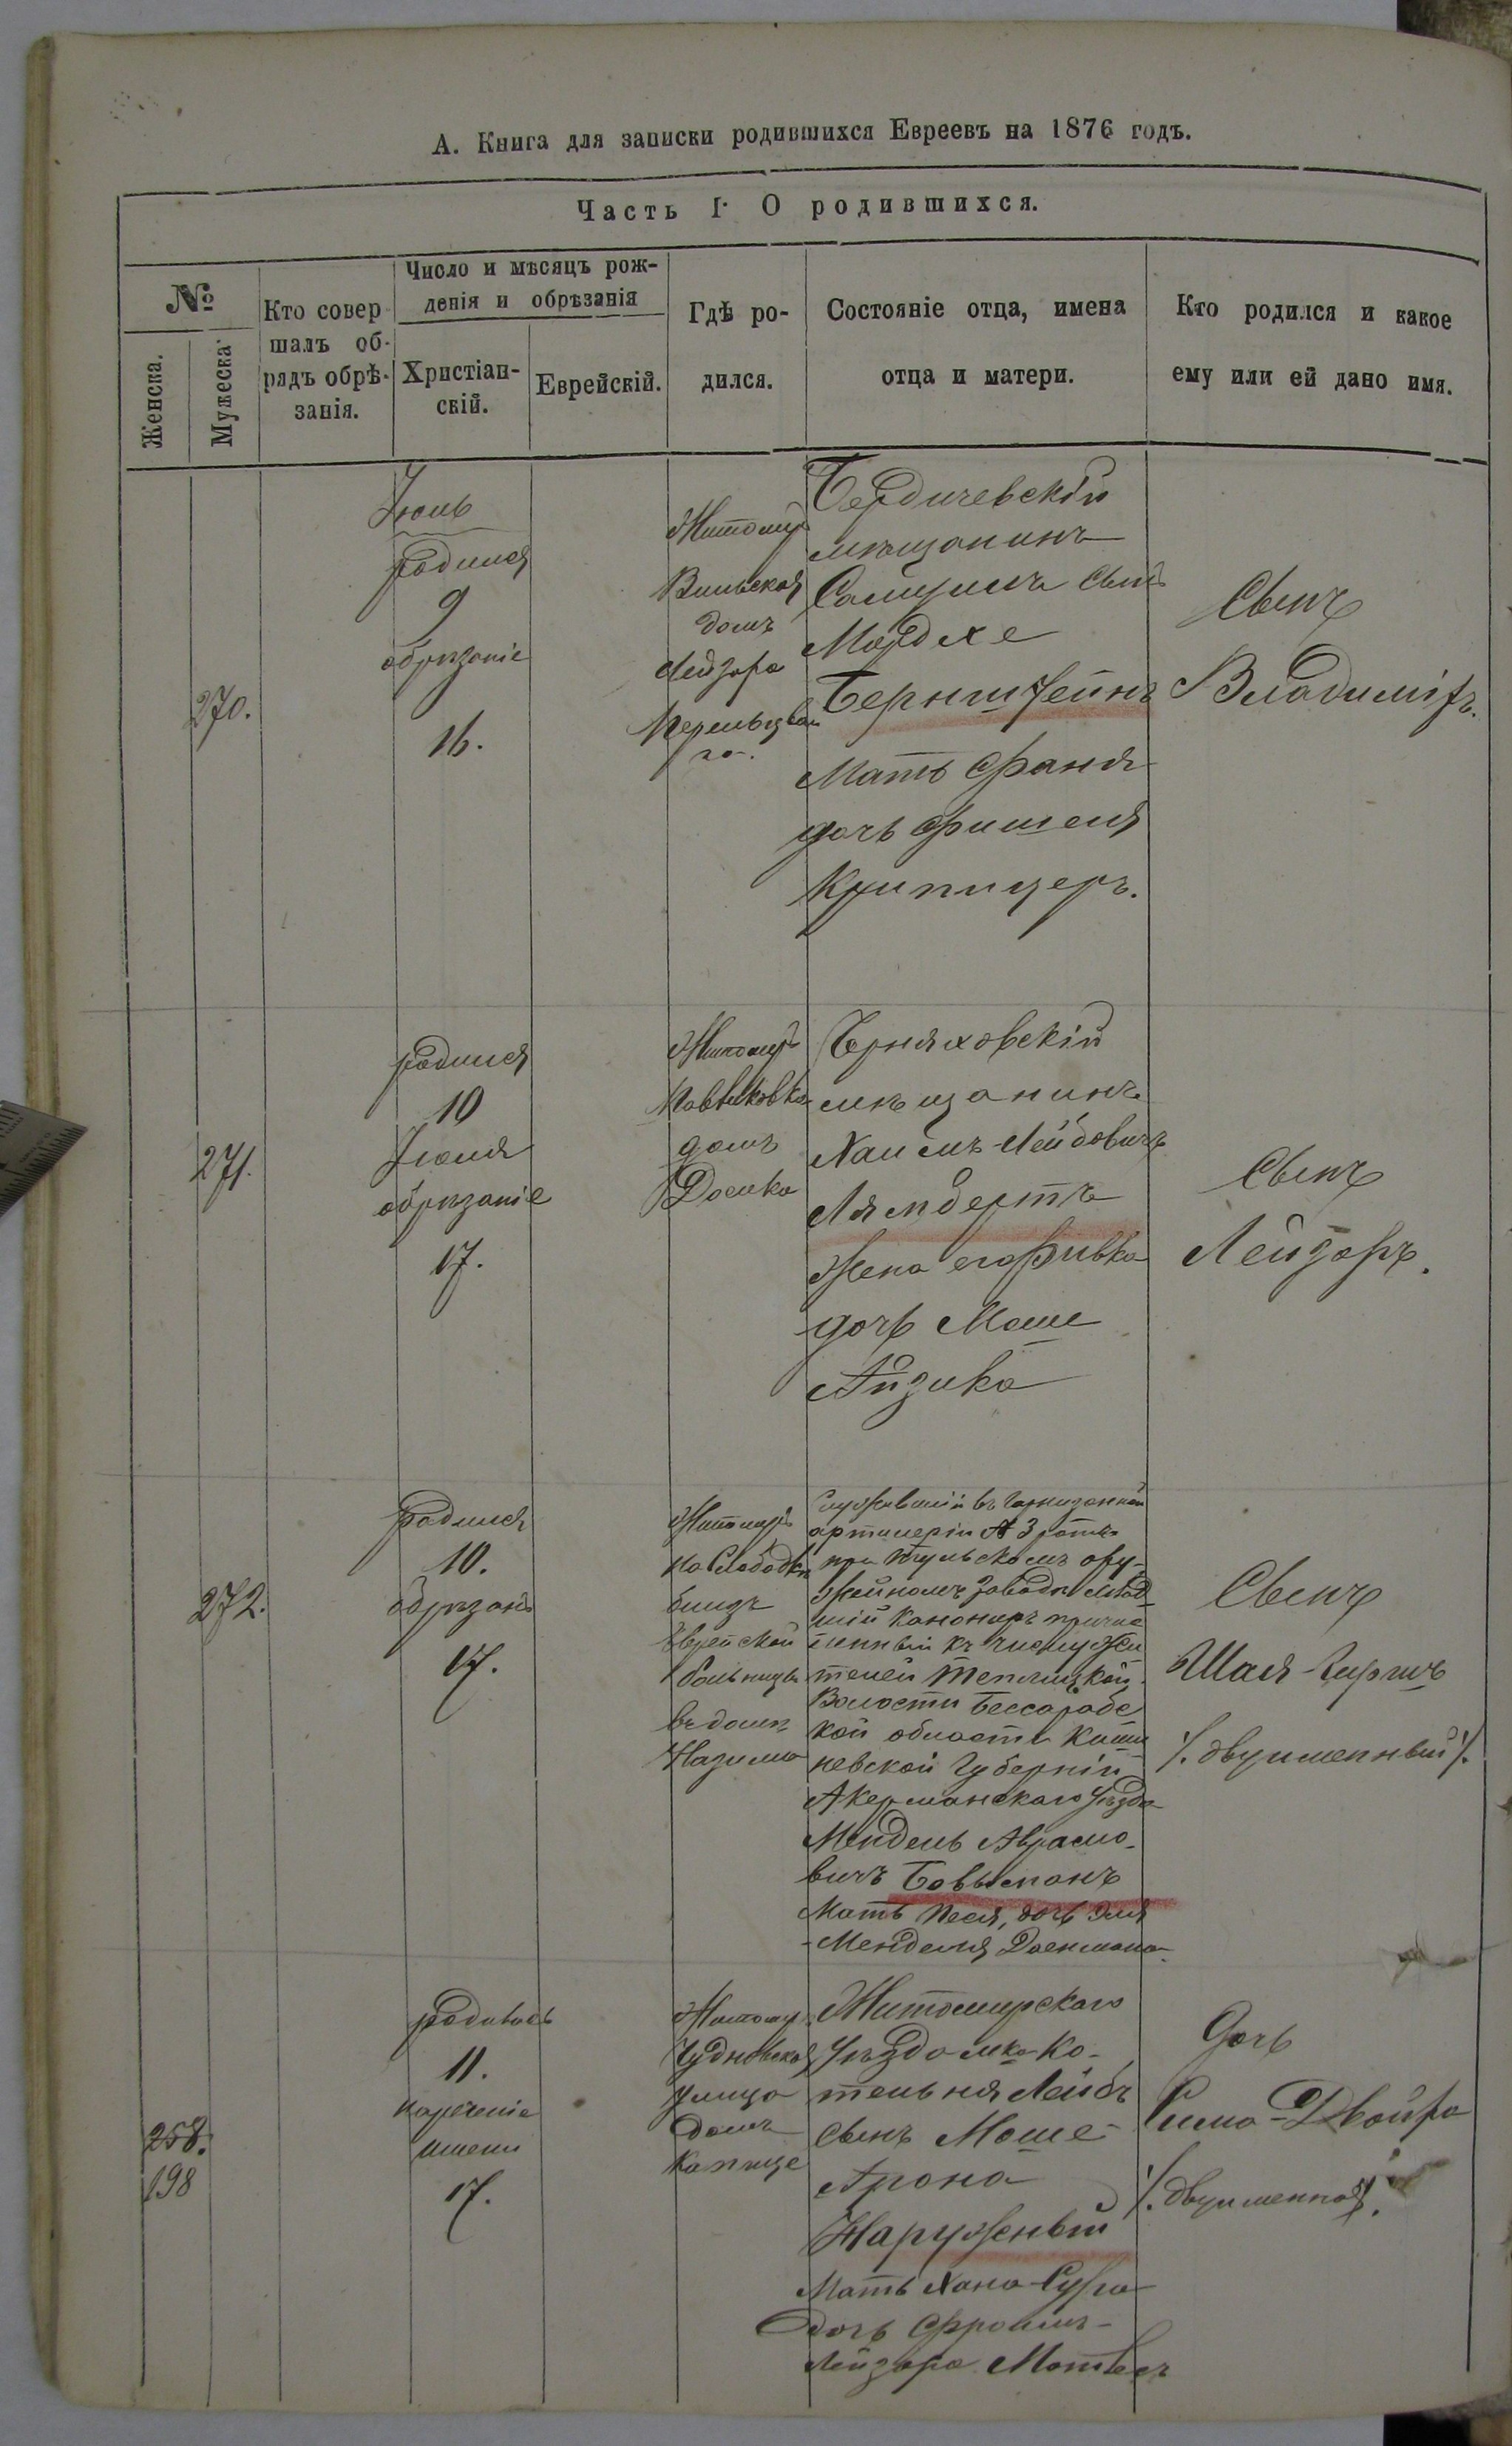 А. Книга для записки родившихся Евреевъ на 1876 годъ.
Часть I. О родившихся.
№
Женска.
Мужеска.
Кто совер
шалъ об-
рядъ обрѣ-
занія.
Число и мѣсяцъ рож-
денія и обрѣзанія
Христіан-
скій.
Еврейскій.
Гдѣ ро-
дился.
Состояніе отца, имена
отца и матери.
Кто родился и какое
ему или ей дано имя.
270.
Іюль
родился
9
обрѣзаніе
16.
Житомир
Вильская
домъ
Лейзора
Бердичевскій
мѣщанинъ
сынъ
Мордхе
Бернштейнъ
Мать Фаня
дочь Фишеля
Крупицеръ.
Сынъ
Владиміръ.
271.
родился
10
Іюля
обрѣзаніе
17.
Житомиръ
домъ
Черняховскій
мѣщанинъ
Хаимъ-Лейбовичъ
Лямбертъ
Жена его Ривка
дочь Моше
Айзика
Сынъ
Лейзоръ.
272.
родился
10.
обрѣзаніе
17.
Житомиръ
на Слободкѣ
близъ
Еврейской
больницы
въ домѣ
Служившій въ Гарнизонной
артилеріи № 3 ротѣ
при Тульскомъ ору-
жейномъ заводѣ млад
шій канониръ причис
ленный къ числу жи
телей Теплицкой
Волости Бессарабс
кой области Киши
невской Губерніи
Акерманскаго уѣзда
Мендель Аврамо-
вичъ Бовыманъ
Мать Песя, дочь Эля
-Менделя
Сынъ
Шая-Гиршъ
/. двуименный /.
258.
198
родилась
11.
нареченіе
имени
17.
Житомир
Чудновская
улица
домъ
Капице
Житомирскаго
Уѣзда мка Ко-
тельня Лейбъ
сынъ Моше-
Арона
Наружный
Мать Хана-Сура
дочь Фроимъ-
Лейзора
Дочь
Сима-Двойра
/. двуименная /.